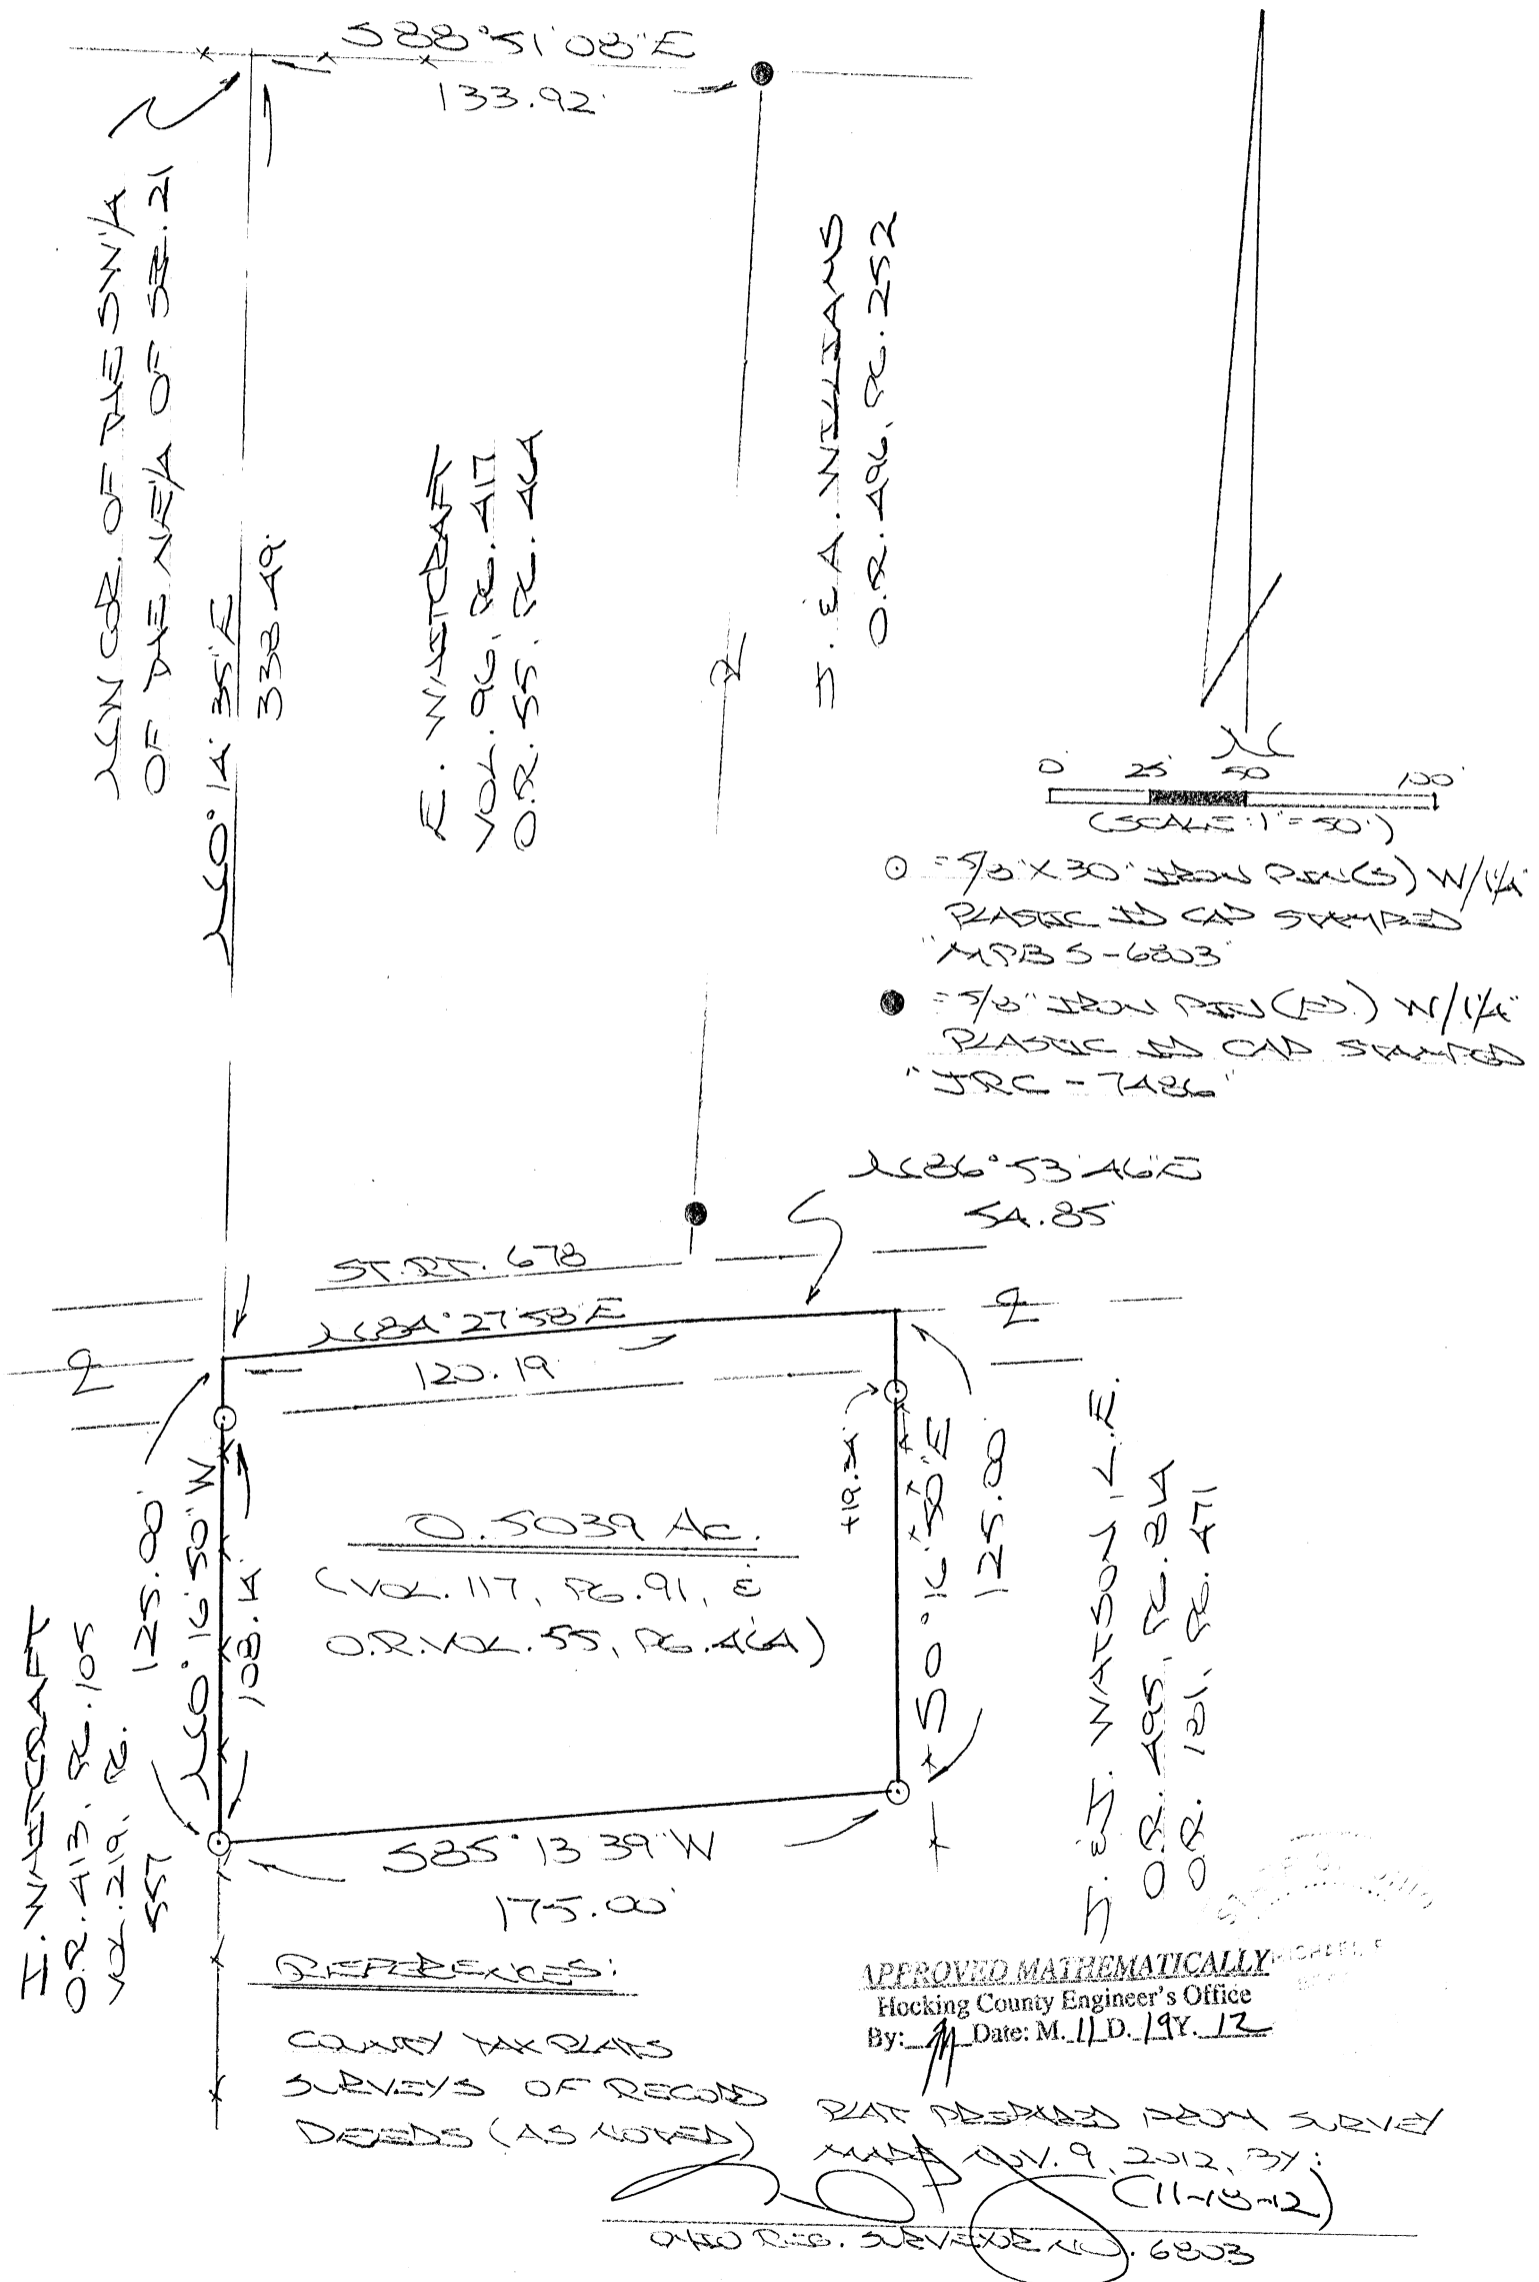 S88°51'08"E
133.92'
NW COR. OF THE SW1/4
OF THE NE1/4 OF SE.21
N0°14'35"E
338.49'
E. WHITCRAFT
VOL. 96, PG. 417
O.R. 55, PG. 464
J. & A. WILLIAMS
O.R. 496, PG. 252
N
0' 25' 50' 100'
(SCALE: 1"=50')
⊙ = 5/8"X30" IRON PIN(S) W/1¼"
PLASTIC ID CAP STAMPED
"MPB S-6803"
● = 5/8" IRON PIN (FD.) W/1¼"
PLASTIC ID CAP STAMPED
"JRC - 7486"
N86°53'46"E
54.85'
ST. RT. 678
N84°27'58"E
120.19'
125.00'
N0°16'50"W
108.14'
+19.24'
S0°16'50"E
125.00'
0.5039 Ac.
(VOL. 117, PG. 91, &
O.R. VOL. 55, PG. 464)
I. WHITCRAFT
O.R. 413, PG. 105
VOL. 219, PG.
557
WATSON, L.E.
O.R. 495, PG. 814
O.R. 181, PG. 471
S85°13'39"W
175.00'
REFERENCES:
COUNTY TAX PLATS
SURVEYS OF RECORD
DEEDS (AS NOTED)
APPROVED MATHEMATICALLY
Hocking County Engineer's Office
By: Date: M. 11 D. 19 Y. 12
PLAT PREPARED FROM SURVEY
MADE NOV. 9, 2012, BY:
(11-18-12)
OHIO REG. SURVEYOR NO. 6803